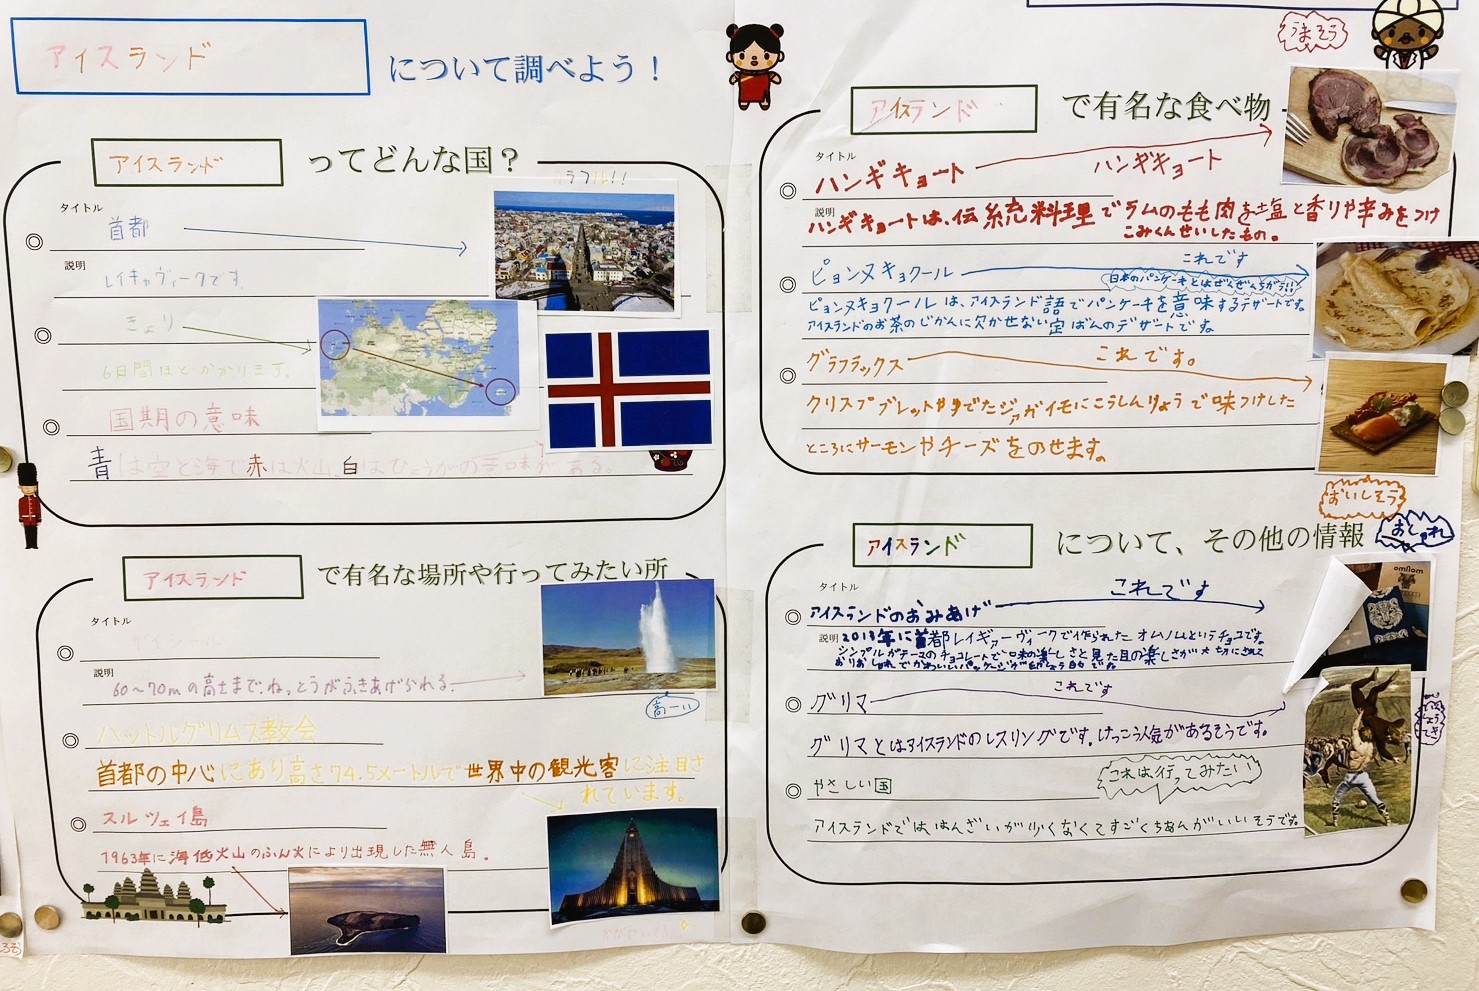 アイスランド について調べよう！
アイスランド ってどんな国？
タイトル
首都
説明
レイキャヴィークです。
きょり
6日間ほどかかります。
国期の意味
青は空と海で赤は火山、白はひょうがの意味がある。
アイスランド で有名な場所や行ってみたい所
タイトル
説明
60～70mの高さまで、ねっとうがふきあげられる。
高ーい
ハットルグリムス教会
首都の中心にあり高さ74.5メートルで世界中の観光客に注目さ
れています。
スルツェイ島
1963年に海低火山のふん火により出現した無人島。
うまそう
アイスランド で有名な食べ物
タイトル
ハンギキョート
ハンギキョート
説明
ハンギキョートは、伝統料理でラムのもも肉を塩と香りや辛みをつけ
こみくんせいしたもの。
ピョンヌキョクール
これです
日本のパンケーキとはぜんぜんちがう!!
ピョンヌキョクールは、アイスランド語でパンケーキを意味するデザートです。
アイスランドのお茶のじかんに欠かせない定ばんのデザートです。
グラフラックス
これです。
クリスプブレットやゆでたジァガイモにこうしんりょうで味つけした
ところにサーモンやチーズをのせます。
おいしそう
アイスランド について、その他の情報
おしゃれ
タイトル
アイスランドのおみあげ
これです
説明
2013年に首都レイキァーヴィークで作られた オムノムというチョコです。
omnom
グリマ
これです
グリマとはアイスランドのレスリングです。けっこう人気があるそうです。
やさしい国
これは行ってみたい!
アイスランドでは、はんざいが少くなくてすごくちあんがいいそうです。